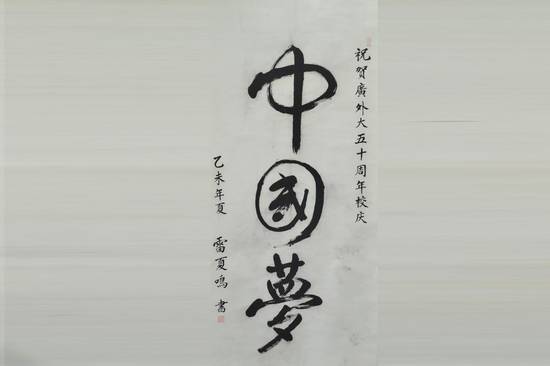 祝贺廣外大五十周年校庆
中國夢
乙未年夏 雷夏鳴 書